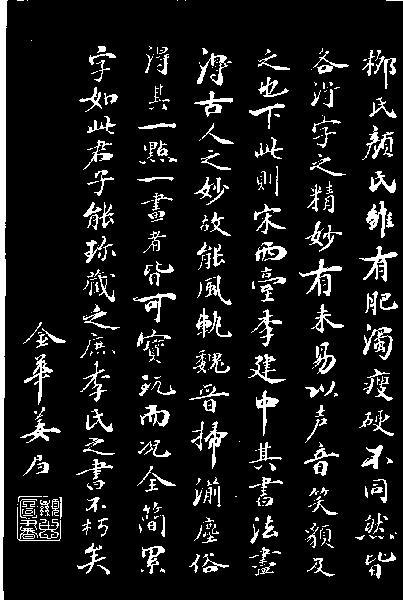 柳氏顔氏雖有肥濁瘦硬不同然皆
各得字之精妙有未易以声音笑貌及
之也下此則宋西臺李建中其書法盡
得古人之妙故能風軌魏晉掃湔塵俗
得其一點一畫者皆可寶玩而况全簡累
字如此君子能珍藏之庶李氏之書不朽矣
金華姜